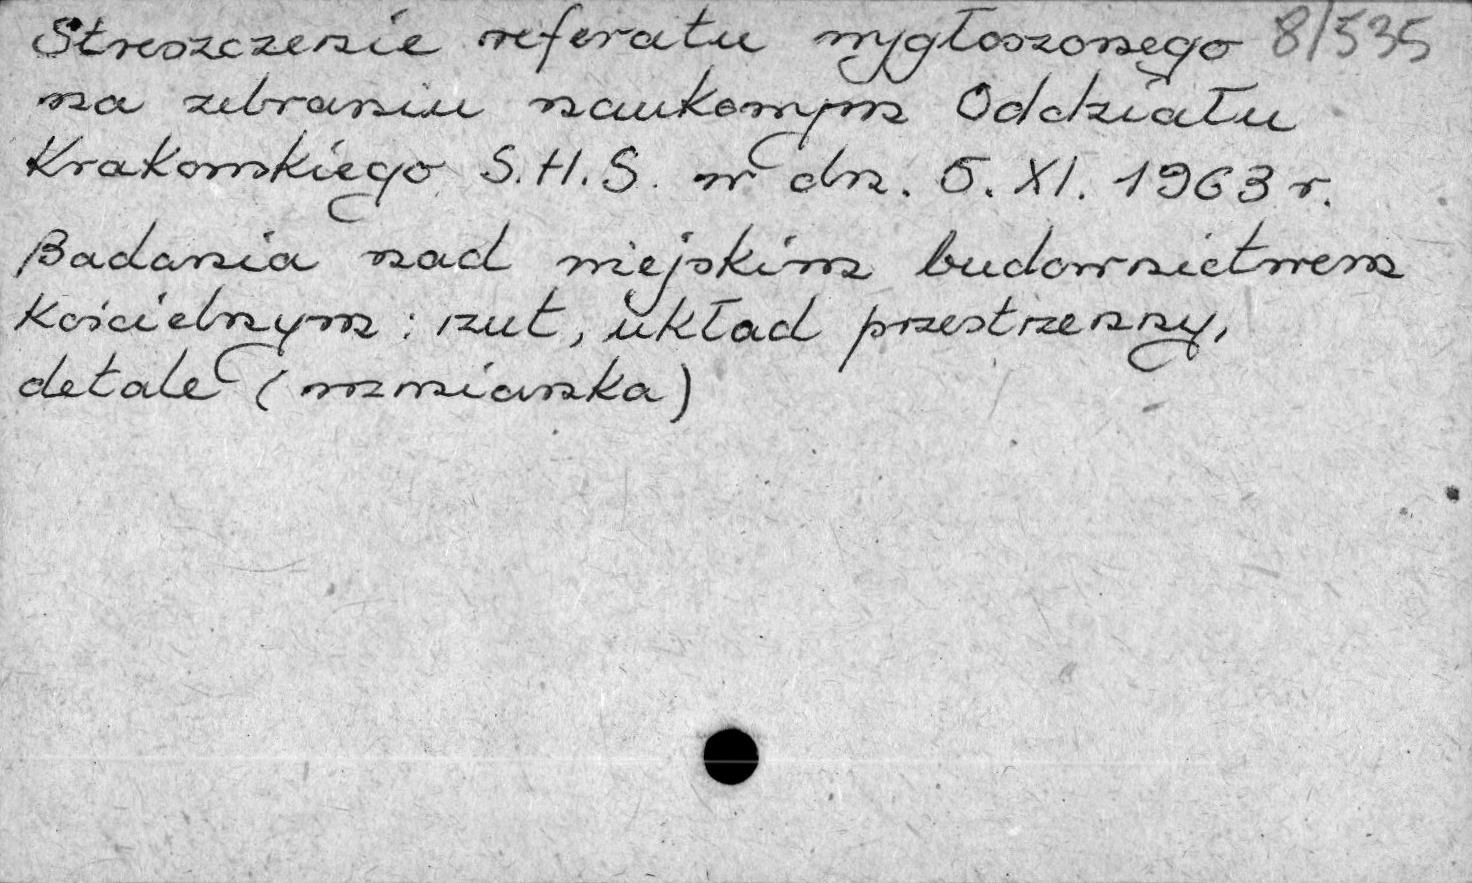 Streszczenie referatu wygłoszonego 8/535
na zebraniu naukowym Oddziału
Krakowskiego S.H.S. w dn. 5. XI. 1963 r.
Badania nad miejskim budownictwem
kościelnym : rzut, układ przestrzenny,
detale (wzmianka)